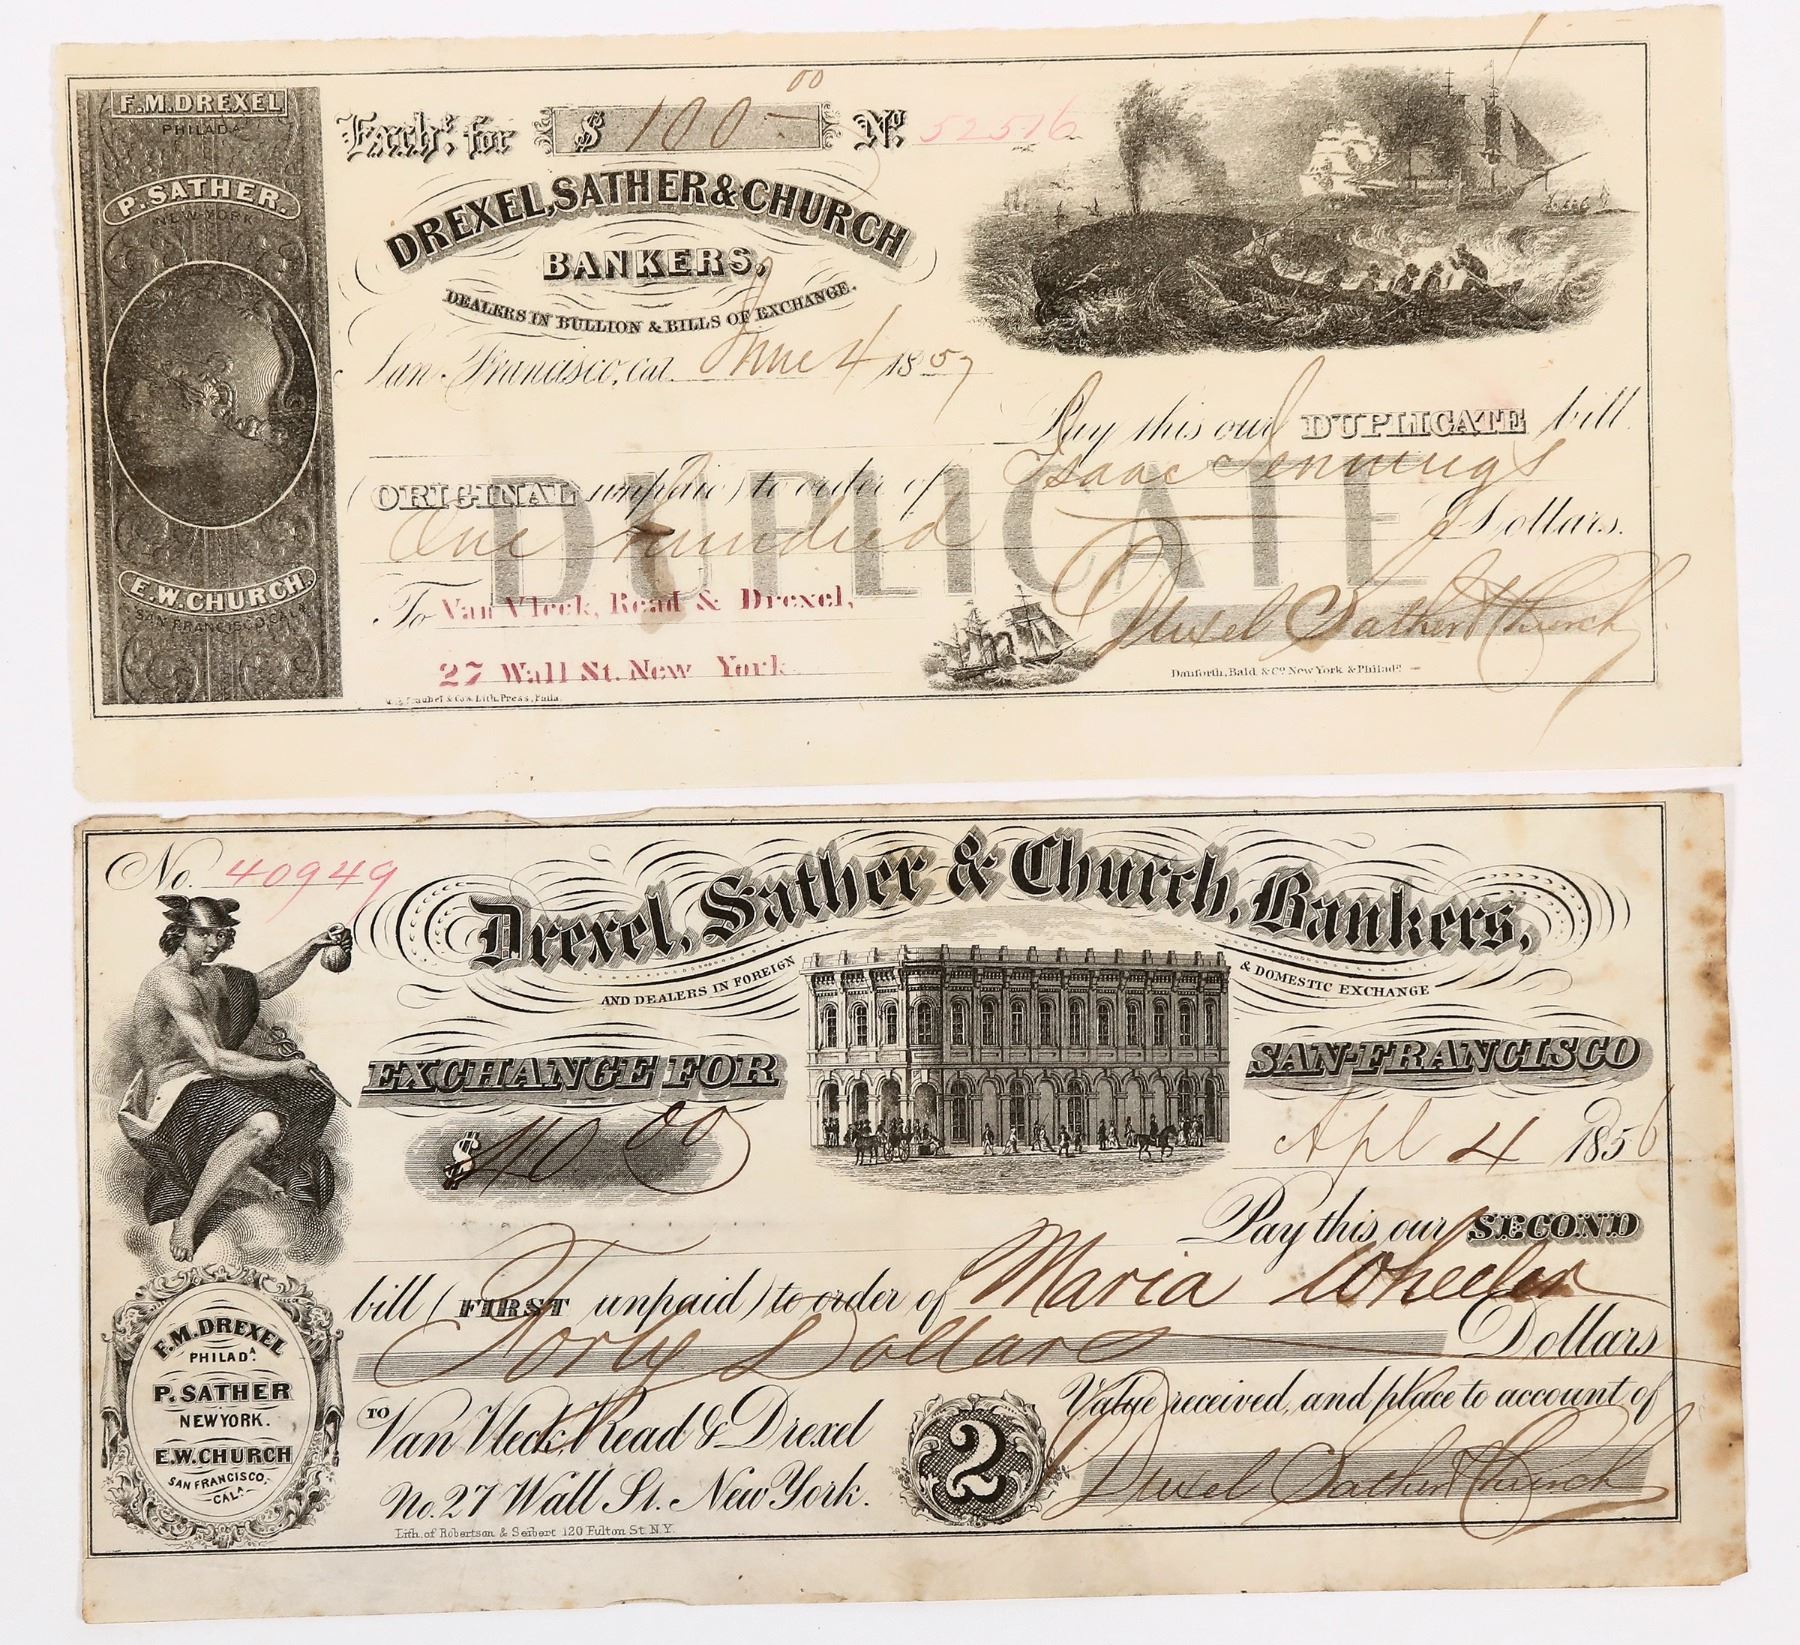 F.M.DREXEL
PHILADA
P. SATHER.
NEW-YORK
E.W.CHURCH.
SAN FRANCISCO, CALA
Exchᵉ. for $ 100.00 Nº. 52516
DREXEL, SATHER & CHURCH
BANKERS,
DEALERS IN BULLION & BILLS OF EXCHANGE.
San Francisco, cal. June 4 1857
Pay this our DUPLICATE bill
(ORIGINAL unpaid) to order of Isaac Jennings
DUPLICATE
One hundred Dollars.
To Van Vleck, Read & Drexel,
27 Wall St. New York
Drexel Sather & Church
Danforth, Bald & Cº. New York & Philadᵃ
& Co's. Lith. Press, Phila.
No. 40949
Drexel, Sather & Church, Bankers,
AND DEALERS IN FOREIGN & DOMESTIC EXCHANGE
EXCHANGE FOR SAN-FRANCISCO
$ 40.00 Apl 4 1856
Pay this our SECOND
bill (FIRST unpaid) to order of Maria Wheeler
Forty Dollars Dollars
F.M. DREXEL
PHILADᴬ.
P. SATHER
NEW YORK.
E.W. CHURCH
SAN FRANCISCO,
CALᴬ.
TO Van Vleck Read & Drexel
No. 27 Wall St. New York.
2
Value received, and place to account of
Drexel Sather & Church
Lith. of Robertson & Seibert 120 Fulton St. N.Y.